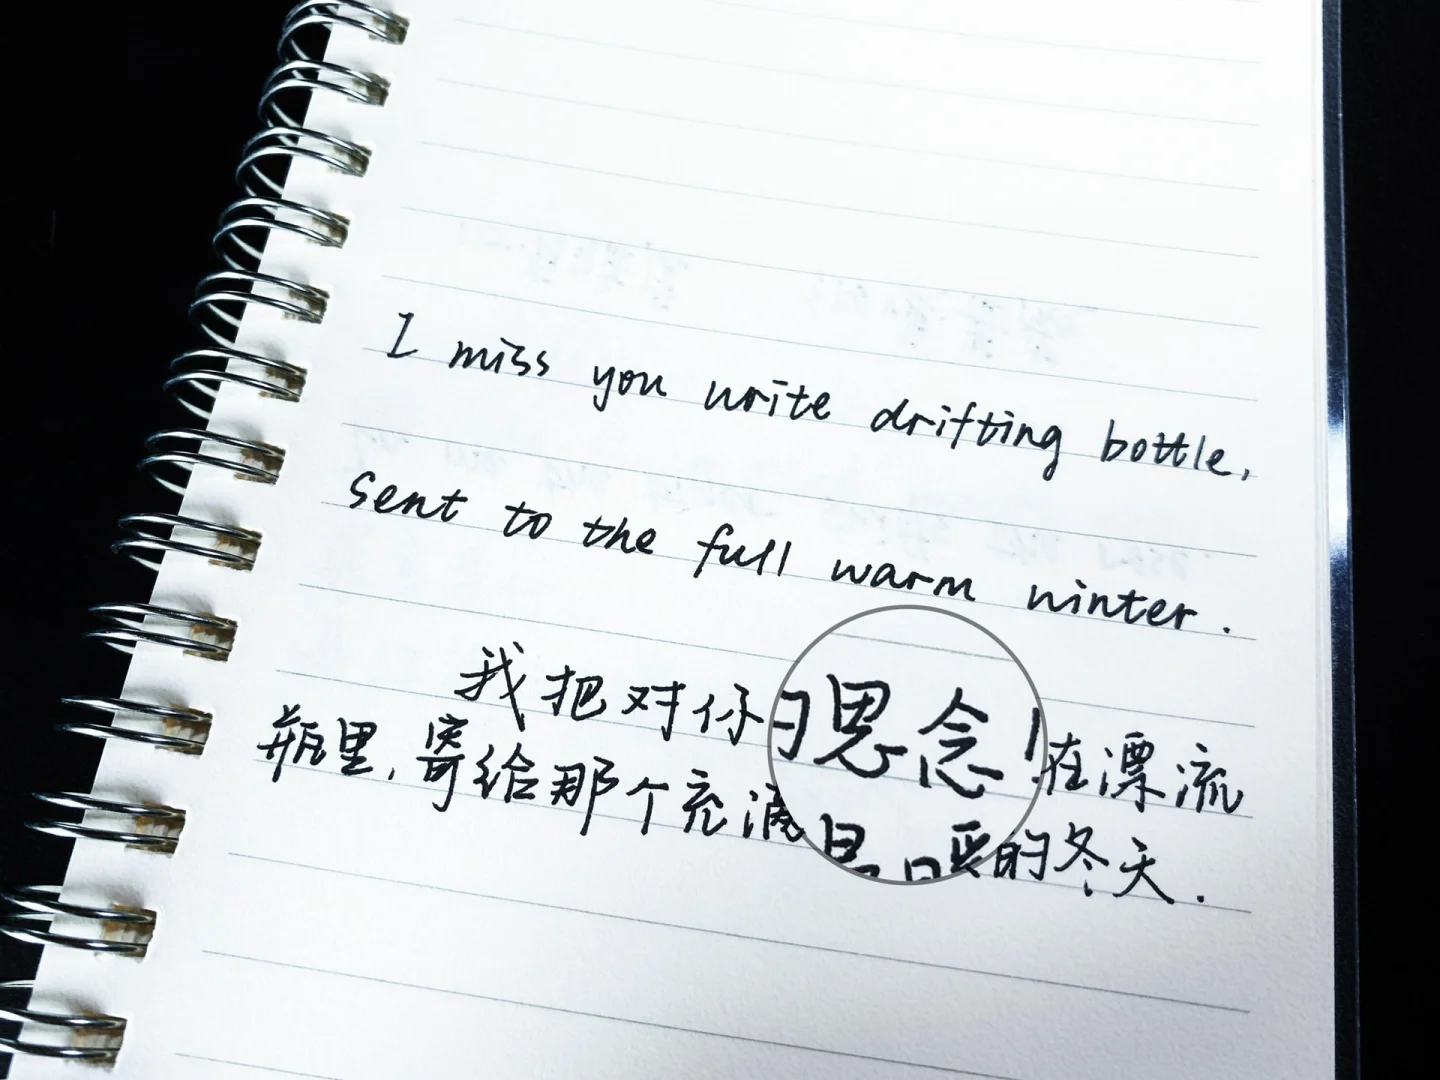 I miss you write drifting bottle,
sent to the full warm winter.
我把对你思念在漂流
瓶里,寄给那个充满的冬天.